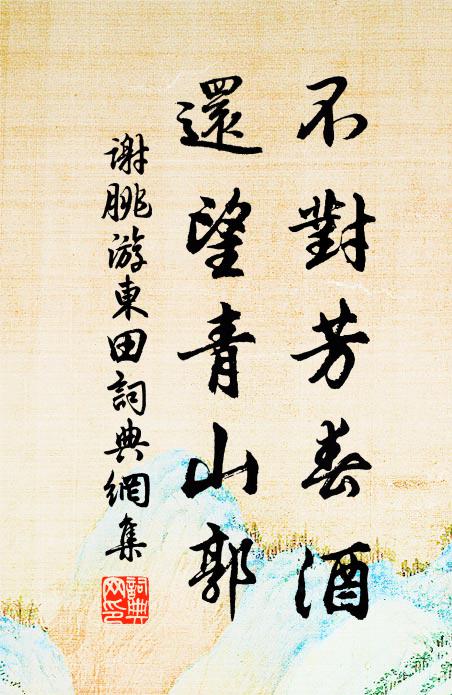 不對芳春酒
還望青山郭
謝朓游東田詞典網集
詞典網印